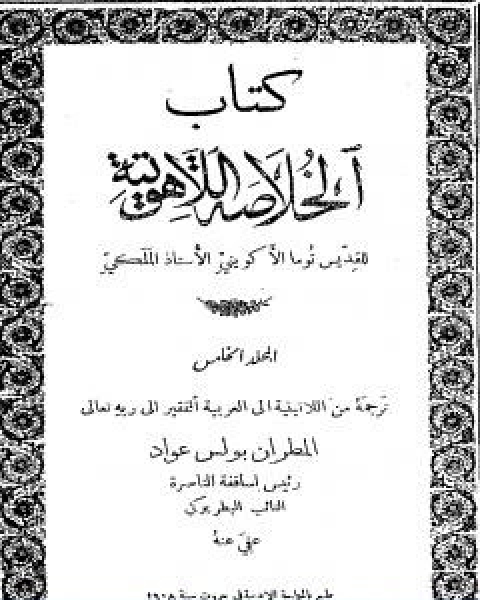 كتاب
ألخُلاصَة اللاهوتيّة
للقدّيس تُوما الأكوينيّ الأستاذ الملَكيّ
المجلد الخامس
ترجمة من اللاتينية الى العربية الفقير الى ربهِ تعالى
المطران بولس عواد
رئيس اساقفة الناصرة
النائب البطريركي
عفيَ عنهُ
طبع بالمطبعة الادبية في بيروت سنة ١٩٠٨